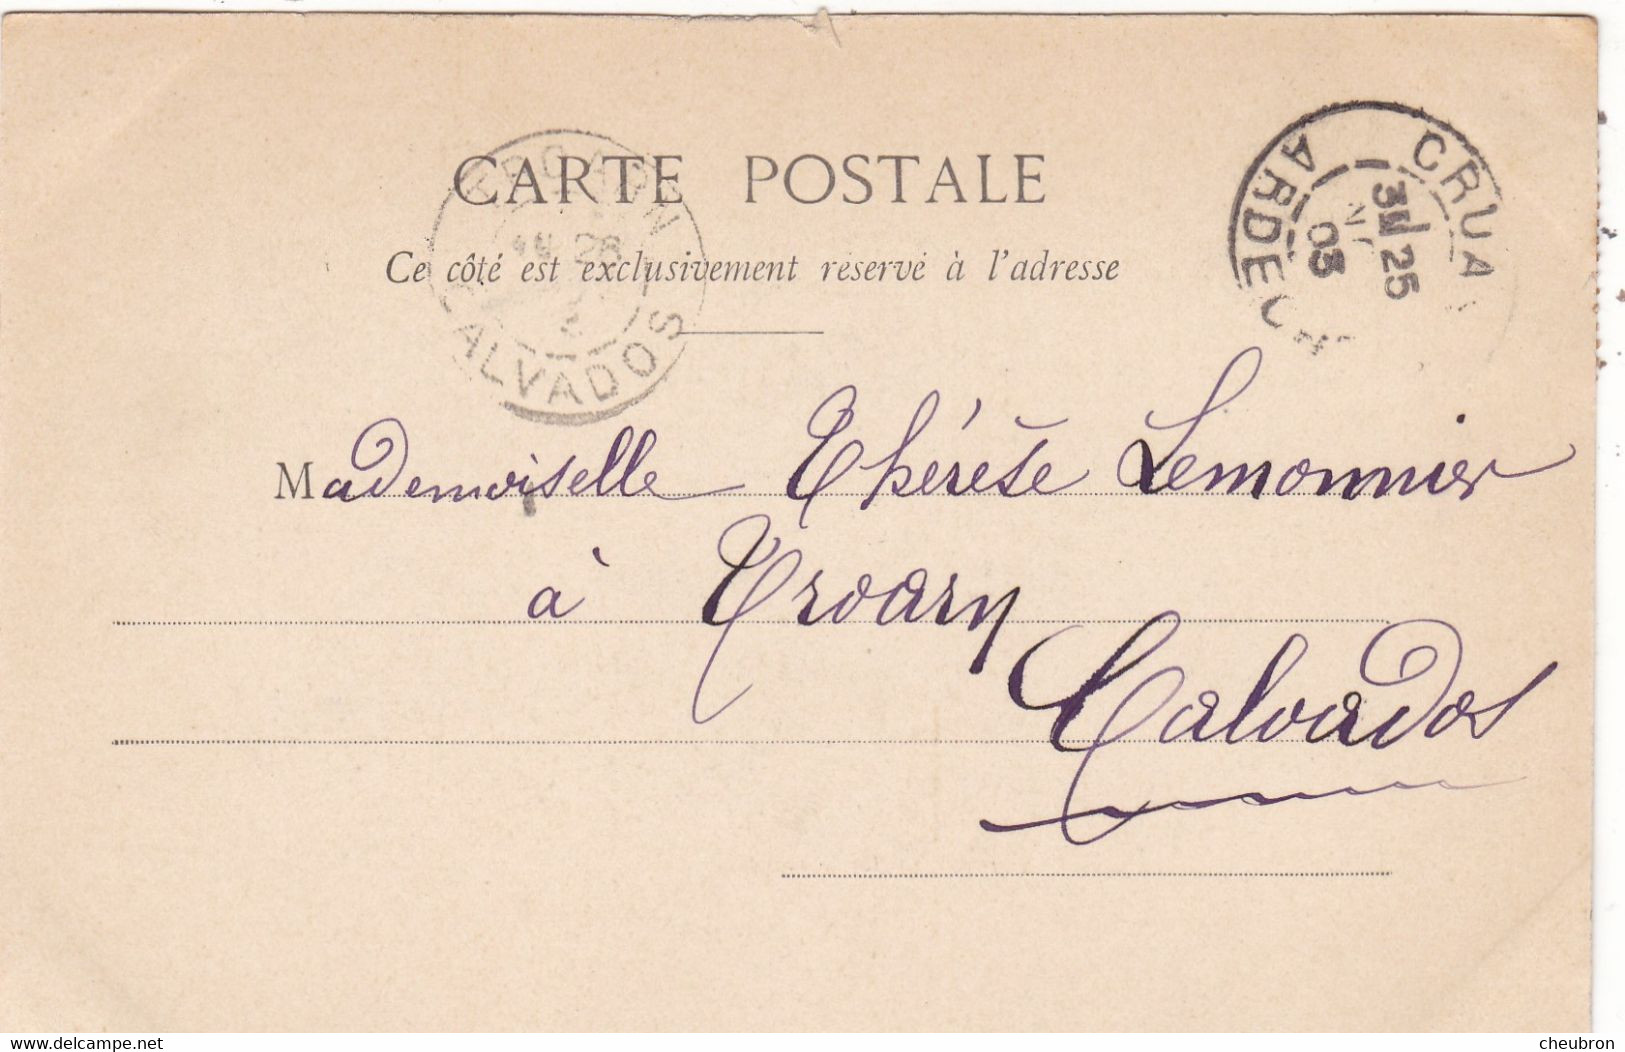 CARTE POSTALE
Ce côté est exclusivement réservé à l'adresse
CRUA
ARDECH
25
03
CALVADOS
Mademoiselle Thérèse Lemonnier
à Troarn
Calvados
www.delcampe.net
cheubron